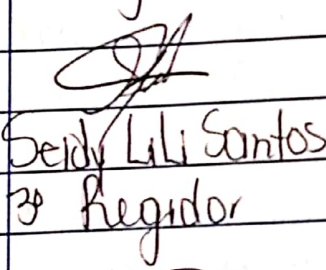 Seidy Lili Santos
3º Regidor